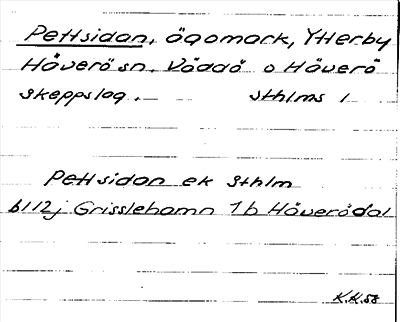 Pettsidan, ägomark, Ytterby
Häverö sn. Väddö o Häverö
skeppslag. Sthlms l
Pettsidan ek Sthlm
6112j Grisslehamn 1b Häverödal
K.K.58